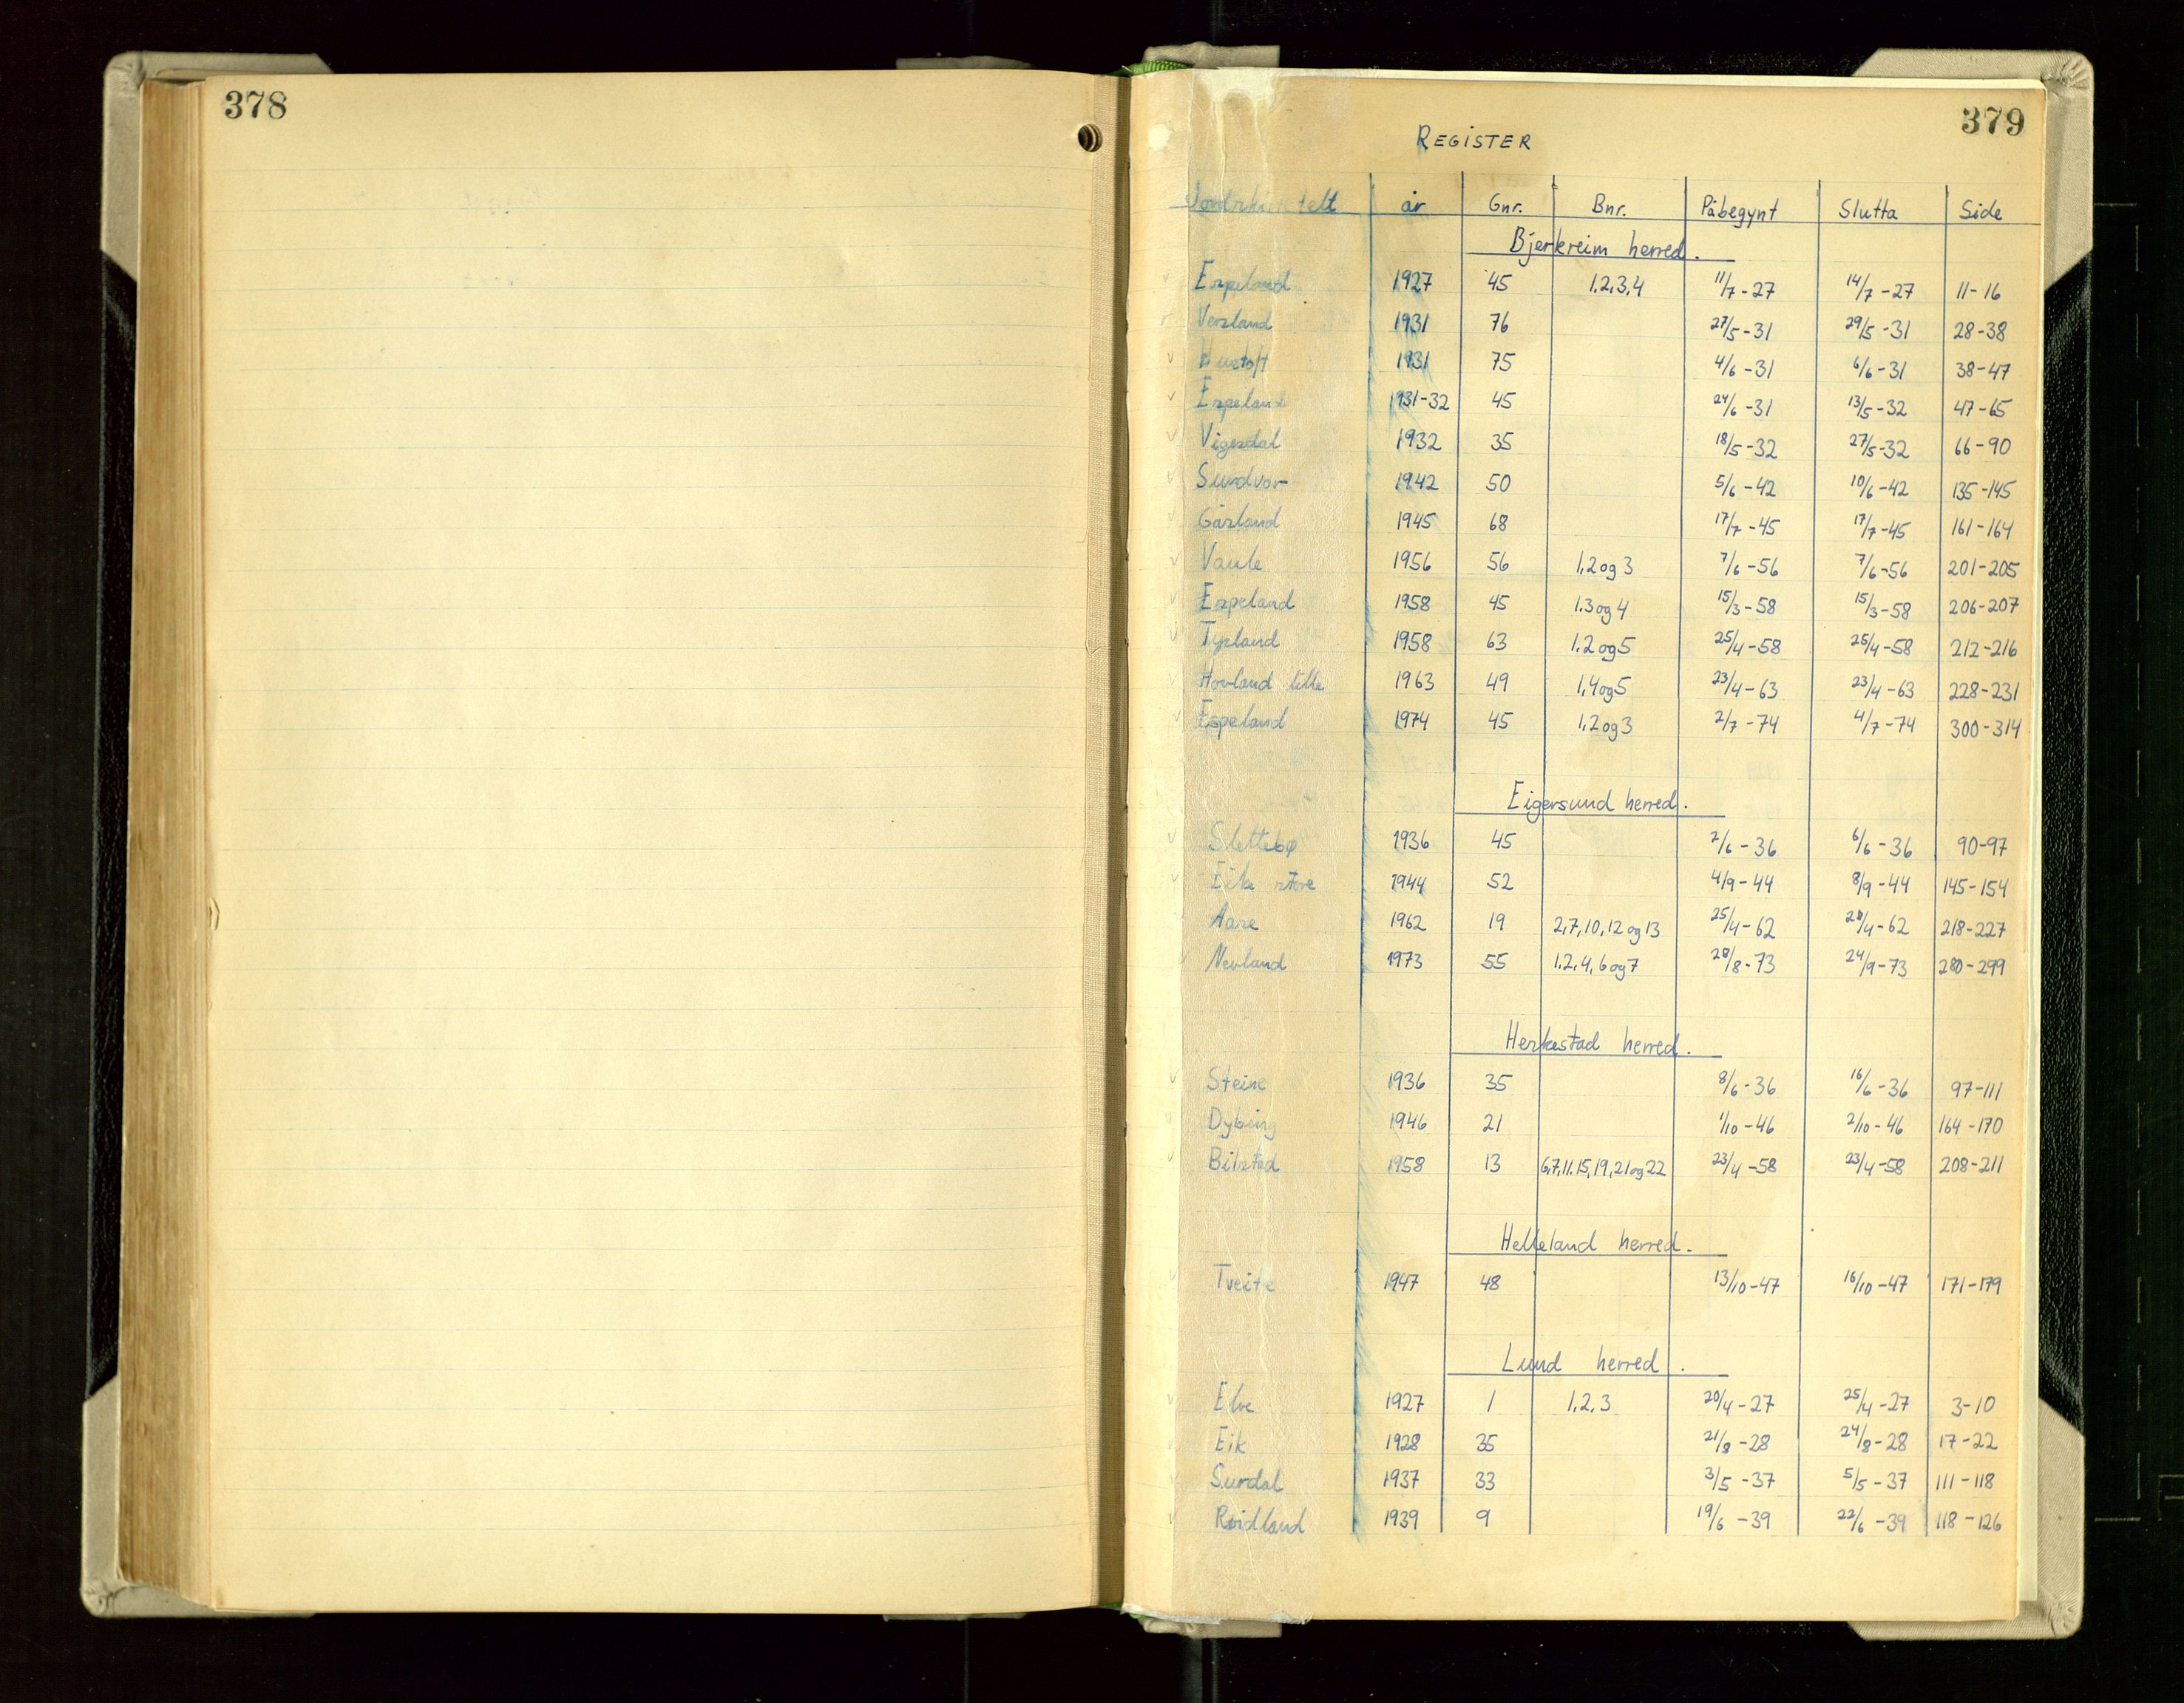 378
379
REGISTER
år Gnr. Bnr. Påbegynt Slutta Side
Bjerkreim herred.
Espeland 1927 45 1,2,3,4 11/7-27 14/7-27 11-16
Versland 1931 76 27/5-31 29/5-31 28-38
1931 75 4/6-31 6/6-31 38-47
Espeland 1931-32 45 24/6-31 13/5-32 47-65
Vigesdal 1932 35 18/5-32 27/5-32 66-90
Sundvor 1942 50 5/6-42 10/6-42 135-145
Gåsland 1945 68 17/7-45 17/7-45 161-164
Vaule 1956 56 1,2 og 3 7/6-56 7/6-56 201-205
Espeland 1958 45 1.3 og 4 15/3-58 15/3-58 206-207
Tysland 1958 63 1.2 og 5 25/4-58 25/4-58 212-216
Hovland litle 1963 49 1,4 og 5 23/4-63 23/4-63 228-231
Espeland 1974 45 1,2 og 3 2/7-74 4/7-74 300-314
Eigersund herred.
Slettebø 1936 45 2/6-36 6/6-36 90-97
Eike store 1944 52 4/9-44 8/9-44 145-154
Aase 1962 19 2,7,10,12 og 13 25/4-62 /4-62 218-227
Nevland 1973 55 1.2.4,6 og 7 28/8-73 24/9-73 280-299
Heskestad herred.
Steine 1936 35 8/6-36 16/6-36 97-111
Dybing 1946 21 1/10-46 2/10-46 164-170
Bilstad 1958 13 6,7,11.15,19,21 og 22 23/4-58 23/4-58 208-211
Helleland herred.
Tveite 1947 48 13/10-47 16/10-47 171-179
Lund herred.
Elve 1927 1 1,2,3 20/4-27 25/4-27 3-10
Eik 1928 35 21/8-28 24/8-28 17-22
Surdal 1937 33 3/5-37 5/5-37 111-118
Røidland 1939 9 19/6-39 22/6-39 118-126